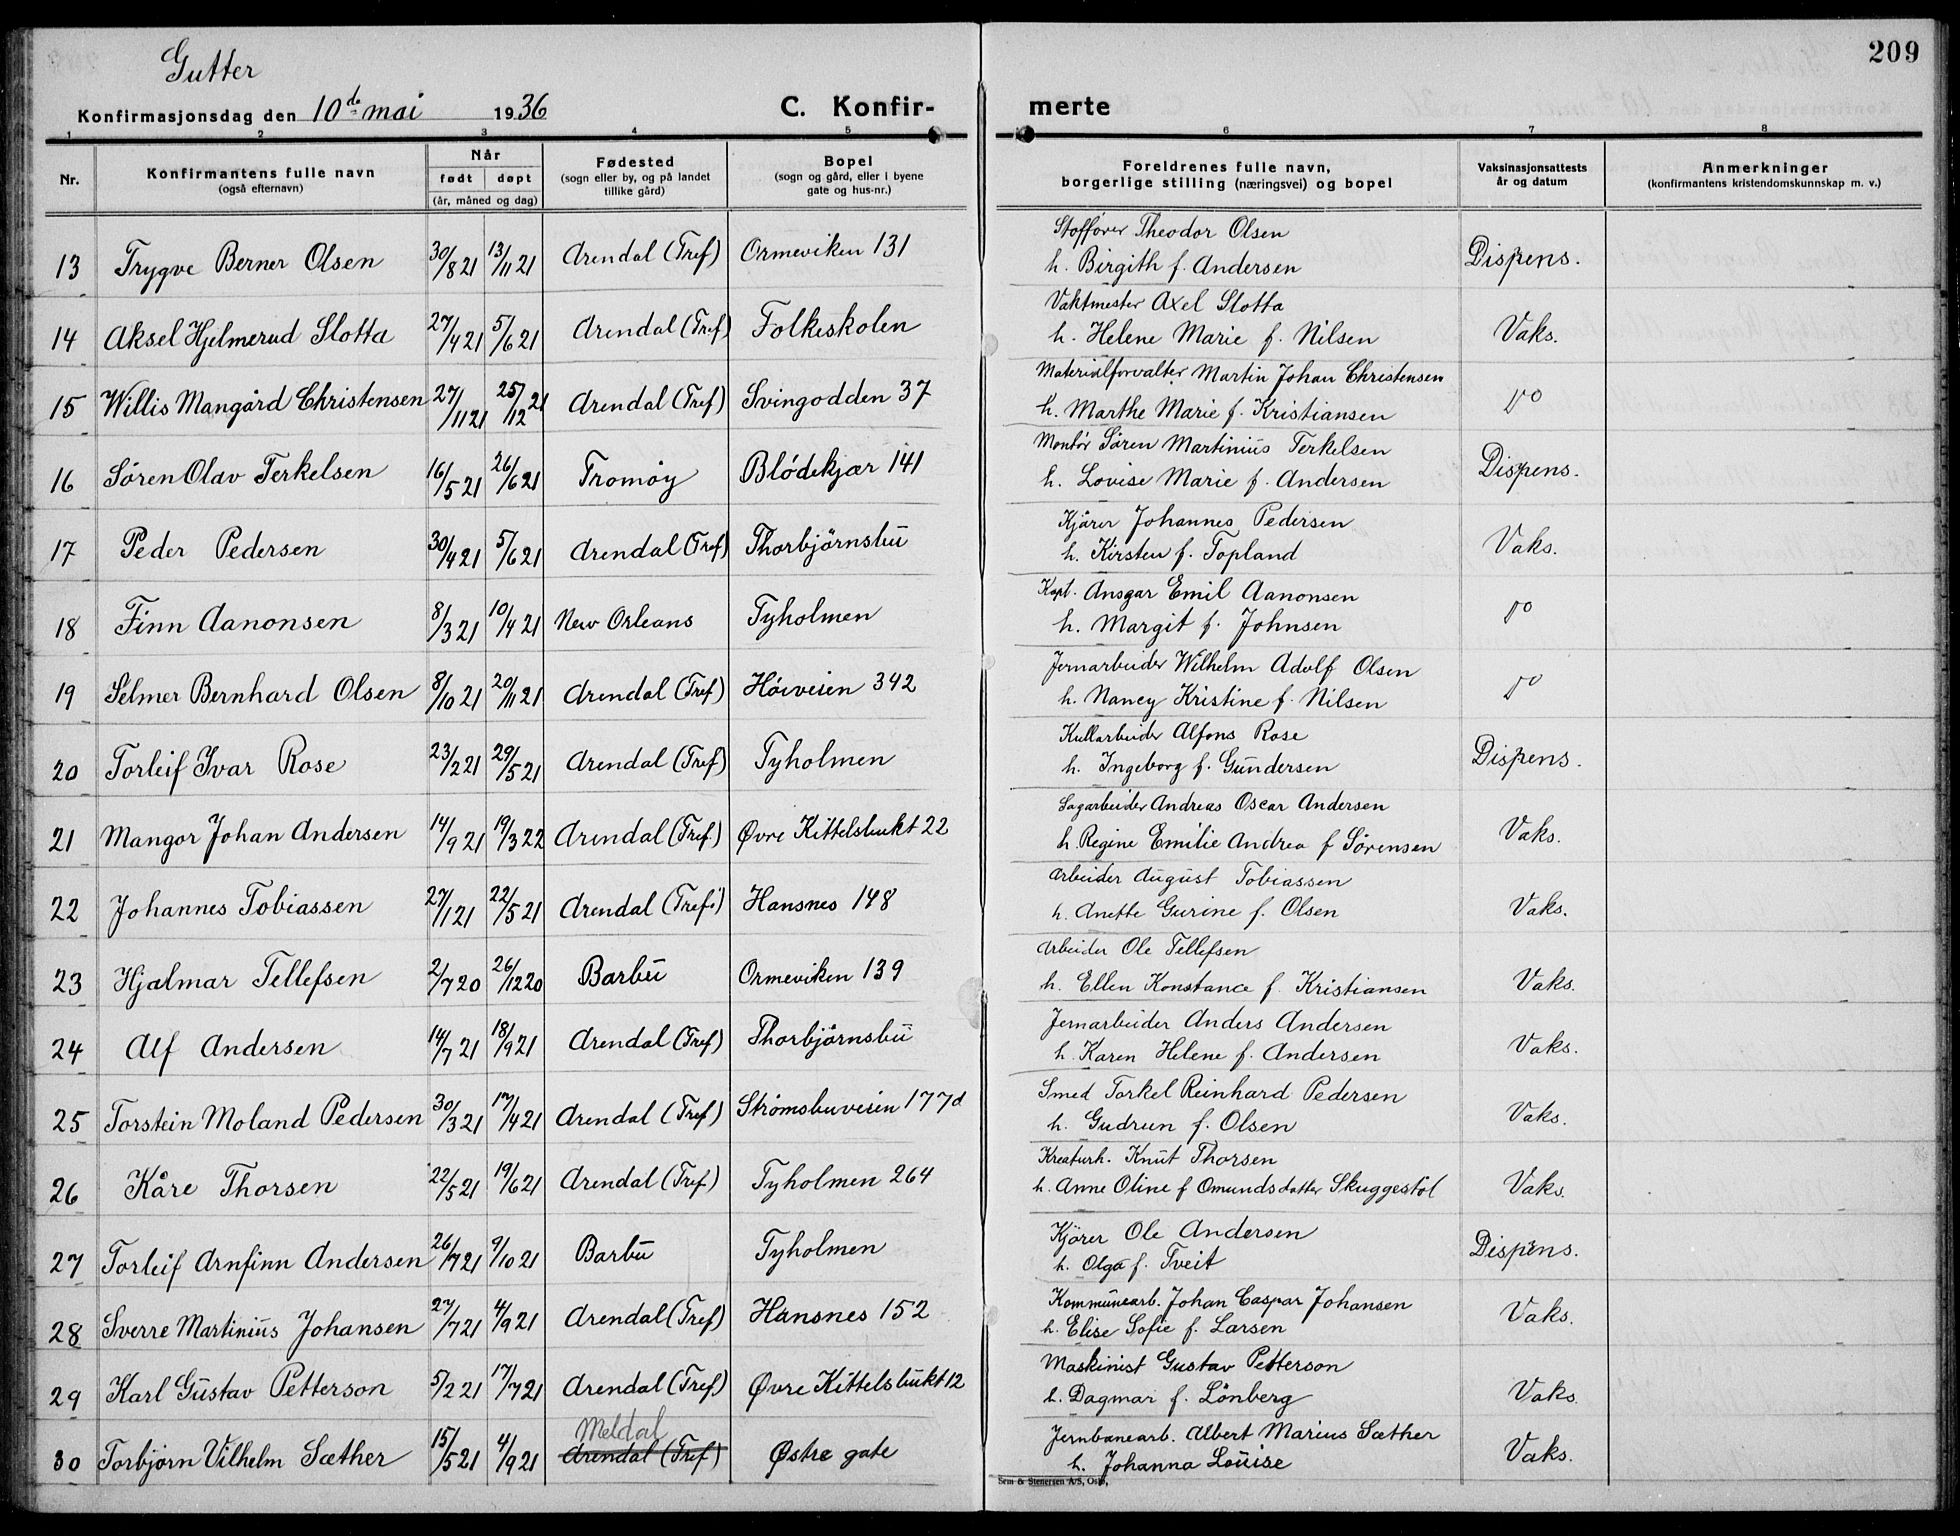 209
Gutter
Konfirmasjonsdag den 10de mai 1936 C. Konfir- merte
1 2 3 4 5 6 7 8
Nr. Konfirmantens fulle navn (også efternavn) Når født døpt (år, måned og dag) Fødested (sogn eller by, og på landet tillike gård) Bopel (sogn og gård, eller i byene gate og hus-nr.) Foreldrenes fulle navn, borgerlige stilling (næringsvei) og bopel Vaksinasjonsattests år og datum Anmerkninger (konfirmantens kristendomskunnskap m. v.)
13 Trygve Berner Olsen 30/8 21 13/11 21 Arendal (Tref) Ormeviken 131 Stoffører Theodor Olsen
h. Birgith f. Andersen Dispens.
14 Aksel Hjelmerud Slotta 27/4 21 5/6 21 Arendal (Tref) Folkeskolen Vaktmester Axel Slotta
h. Helene Marie f. Nilsen Vaks.
15 Willis Mangård Christensen 27/11 21 25/12 21 Arendal (Tref) Svingodden 37 Materialforvalter Martin Johan Christensen
h. Marthe Marie f. Kristiansen do
16 Søren Olav Terkelsen 16/5 21 26/6 21 Tromøy Blødekjær 141 Montør Søren Martinius Terkelsen
h. Lovise Marie f. Andersen Dispens.
17 Peder Pedersen 30/4 21 5/6 21 Arendal (Tref) Thorbjørnsbu Kjører Johannes Pedersen
h. Kirsten f. Topland Vaks.
18 Finn Aanonsen 8/3 21 10/4 21 New Orleans Tyholmen Kapt. Ansgar Emil Aanonsen
h. Margit f. Johnsen do
19 Selmer Bernhard Olsen 8/10 21 20/11 21 Arendal (Tref) Høiveien 342 Jernarbeider Wilhelm Adolf Olsen
h. Nancy Kristine f. Nilsen do
20 Torleif Ivar Rose 23/2 21 29/5 21 Arendal (Tref) Tyholmen Kullarbeider Alfons Rose
h. Ingeborg f. Gundersen Dispens.
21 Mangor Johan Andersen 14/9 21 19/3 22 Arendal (Tref.) Øvre Kittelsbukt 22 Sagarbeider Andreas Oscar Andersen
h. Regine Emilie Andrea f Sørensen Vaks.
22 Johannes Tobiassen 27/1 21 22/5 21 Arendal (Tref.) Hansnes 148 Arbeider August Tobiassen
h. Anette Gurine f. Olsen Vaks.
23 Hjalmar Tellefsen 2/7 20 26/12 20 Barbu Ormeviken 139 Arbeider Ole Tellefsen
h. Ellen Konstance f. Kristiansen Vaks.
24 Alf Andersen 14/7 21 18/9 21 Arendal (Tref) Thorbjørnsbu Jernarbeider Anders Andersen
h. Karen Helene f. Andersen Vaks.
25 Torstein Moland Pedersen 30/3 21 17/4 21 Arendal (Tref) Strømsbuveien 177d Smed Torkel Reinhard Pedersen
h. Gudrun f. Olsen Vaks.
26 Kåre Thorsen 22/5 21 19/6 21 Arendal (Tref) Tyholmen 264 Kreaturh. Knut Thorsen
h. Anne Oline f Omundsdatter Skuggestøl Vaks.
27 Torleif Arnfinn Andersen 26/7 21 9/10 21 Barbu Tyholmen Kjører Ole Andersen
h. Olga f. Tveit Dispens.
28 Sverre Martinius Johansen 27/7 21 4/9 21 Arendal (Tref) Hansnes 152 Kommunearb. Johan Caspar Johansen
h. Elise Sofie f. Larsen Vaks.
29 Karl Gustav Petterson 5/2 21 17/7 21 Arendal (Tref) Øvre Kittelsbukt 12 Maskinist Gustav Petterson
h. Dagmar f. Lönberg Vaks.
30 Torbjørn Vilhelm Sæther 15/5 21 4/9 21 Meldal
Arendal (Tref) Østre gate Jernbanearb. Albert Marius Sæther
h. Johanna Louise Vaks.
Sem & Stenersen A/S, Oslo.